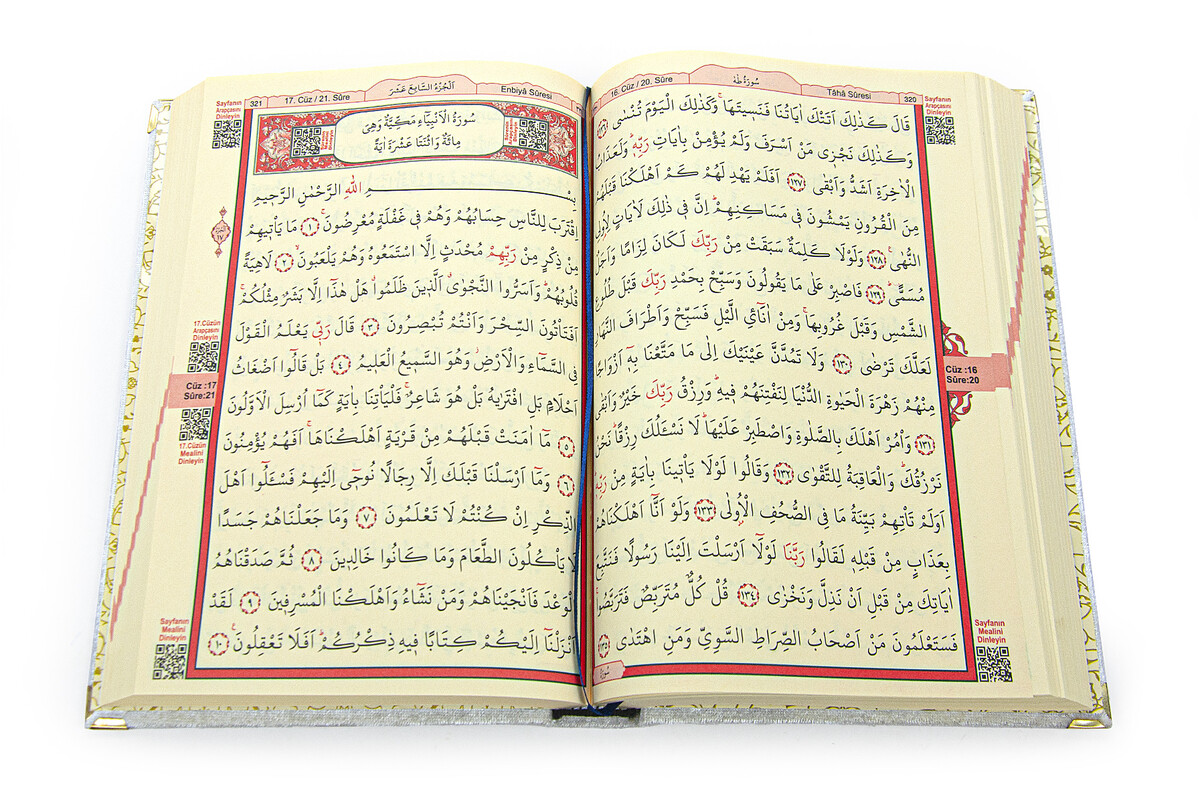 320
Tâhâ Sûresi
سُورَةُ طٰهٰ
16. Cüz / 20. Sûre
Sayfanın
Arapçasını
Dinleyin
قَالَ كَذٰلِكَ اَتَتْكَ اٰيَاتُنَا فَنَسٖيتَهَاۚ وَكَذٰلِكَ الْيَوْمَ تُنْسٰى ﴿١٢٦﴾
وَكَذٰلِكَ نَجْزٖى مَنْ اَسْرَفَ وَلَمْ يُؤْمِنْ بِاٰيَاتِ رَبِّهٖؕ وَلَعَذَابُ
الْاٰخِرَةِ اَشَدُّ وَاَبْقٰى ﴿١٢٧﴾ اَفَلَمْ يَهْدِ لَهُمْ كَمْ اَهْلَكْنَا قَبْلَهُمْ
مِنَ الْقُرُونِ يَمْشُونَ فٖى مَسَاكِنِهِمْؕ اِنَّ فٖى ذٰلِكَ لَاٰيَاتٍ لِاُولِى
النُّهٰىۚ ﴿١٢٨﴾ وَلَوْلَا كَلِمَةٌ سَبَقَتْ مِنْ رَبِّكَ لَكَانَ لِزَامًا وَاَجَلٌ
مُسَمًّىؕ ﴿١٢٩﴾ فَاصْبِرْ عَلٰى مَا يَقُولُونَ وَسَبِّحْ بِحَمْدِ رَبِّكَ قَبْلَ طُلُوعِ
الشَّمْسِ وَقَبْلَ غُرُوبِهَاۚ وَمِنْ اٰنَآئِ الَّيْلِ فَسَبِّحْ وَاَطْرَافَ النَّهَارِ
لَعَلَّكَ تَرْضٰى ﴿١٣٠﴾ وَلَا تَمُدَّنَّ عَيْنَيْكَ اِلٰى مَا مَتَّعْنَا بِهٖٓ اَزْوَاجًا
مِنْهُمْ زَهْرَةَ الْحَيٰوةِ الدُّنْيَا لِنَفْتِنَهُمْ فٖيهِؕ وَرِزْقُ رَبِّكَ خَيْرٌ وَاَبْقٰى
﴿١٣١﴾ وَأْمُرْ اَهْلَكَ بِالصَّلٰوةِ وَاصْطَبِرْ عَلَيْهَاؕ لَا نَسْـَٔلُكَ رِزْقًاؕ نَحْنُ
نَرْزُقُكَؕ وَالْعَاقِبَةُ لِلتَّقْوٰى ﴿١٣٢﴾ وَقَالُوا لَوْلَا يَأْتٖينَا بِاٰيَةٍ مِنْ رَبِّهٖؕ
اَوَلَمْ تَأْتِهِمْ بَيِّنَةُ مَا فِى الصُّحُفِ الْاُولٰى ﴿١٣٣﴾ وَلَوْ اَنَّٓا اَهْلَكْنَاهُمْ
بِعَذَابٍ مِنْ قَبْلِهٖ لَقَالُوا رَبَّنَا لَوْلَٓا اَرْسَلْتَ اِلَيْنَا رَسُولًا فَنَتَّبِعَ
اٰيَاتِكَ مِنْ قَبْلِ اَنْ نَذِلَّ وَنَخْزٰى ﴿١٣٤﴾ قُلْ كُلٌّ مُتَرَبِّصٌ فَتَرَبَّصُواۚ
فَسَتَعْلَمُونَ مَنْ اَصْحَابُ الصِّرَاطِ السَّوِىِّ وَمَنِ اهْتَدٰى ﴿١٣٥﴾
Cüz :16
Sûre:20
Sayfanın
Mealini
Dinleyin
Enbiyâ Sûresi
اَلْجُزْءُ السَّابِعَ عَشَرَ
17. Cüz / 21. Sûre
321
Sayfanın
Arapçasını
Dinleyin
سُورَةُ الْاَنْبِيَٓاءِ مَكِّيَّةٌ وَهِىَ
مِائَةٌ وَاثْنَتَا عَشْرَةَ اٰيَةً
بِسْمِ اللّٰهِ الرَّحْمٰنِ الرَّحٖيمِ
اِقْتَرَبَ لِلنَّاسِ حِسَابُهُمْ وَهُمْ فٖى غَفْلَةٍ مُعْرِضُونَۚ ﴿١﴾ مَا يَأْتٖيهِمْ
مِنْ ذِكْرٍ مِنْ رَبِّهِمْ مُحْدَثٍ اِلَّا اسْتَمَعُوهُ وَهُمْ يَلْعَبُونَۙ ﴿٢﴾ لَاهِيَةً
قُلُوبُهُمْؕ وَاَسَرُّوا النَّجْوَىۗ اَلَّذٖينَ ظَلَمُواۗ هَلْ هٰذَٓا اِلَّا بَشَرٌ مِثْلُكُمْۚ
اَفَتَأْتُونَ السِّحْرَ وَاَنْتُمْ تُبْصِرُونَ ﴿٣﴾ قَالَ رَبّٖى يَعْلَمُ الْقَوْلَ
فِى السَّمَٓاءِ وَالْاَرْضِؗ وَهُوَ السَّمٖيعُ الْعَلٖيمُ ﴿٤﴾ بَلْ قَالُٓوا اَضْغَاثُ
اَحْلَامٍ بَلِ افْتَرٰيهُ بَلْ هُوَ شَاعِرٌۚ فَلْيَأْتِنَا بِاٰيَةٍ كَمَٓا اُرْسِلَ الْاَوَّلُونَ
﴿٥﴾ مَٓا اٰمَنَتْ قَبْلَهُمْ مِنْ قَرْيَةٍ اَهْلَكْنَاهَاۚ اَفَهُمْ يُؤْمِنُونَ
﴿٦﴾ وَمَٓا اَرْسَلْنَا قَبْلَكَ اِلَّا رِجَالًا نُوحٖٓى اِلَيْهِمْ فَسْـَٔلُٓوا اَهْلَ
الذِّكْرِ اِنْ كُنْتُمْ لَا تَعْلَمُونَ ﴿٧﴾ وَمَا جَعَلْنَاهُمْ جَسَدًا
لَا يَأْكُلُونَ الطَّعَامَ وَمَا كَانُوا خَالِدٖينَ ﴿٨﴾ ثُمَّ صَدَقْنَاهُمُ
الْوَعْدَ فَاَنْجَيْنَاهُمْ وَمَنْ نَشَٓاءُ وَاَهْلَكْنَا الْمُسْرِفٖينَ ﴿٩﴾ لَقَدْ
اَنْزَلْنَٓا اِلَيْكُمْ كِتَابًا فٖيهِ ذِكْرُكُمْؕ اَفَلَا تَعْقِلُونَۚ ﴿١٠﴾
17.Cüzün
Arapçasını
Dinleyin
Cüz :17
Sûre:21
17.Cüzün
Mealini
Dinleyin
Sayfanın
Mealini
Dinleyin